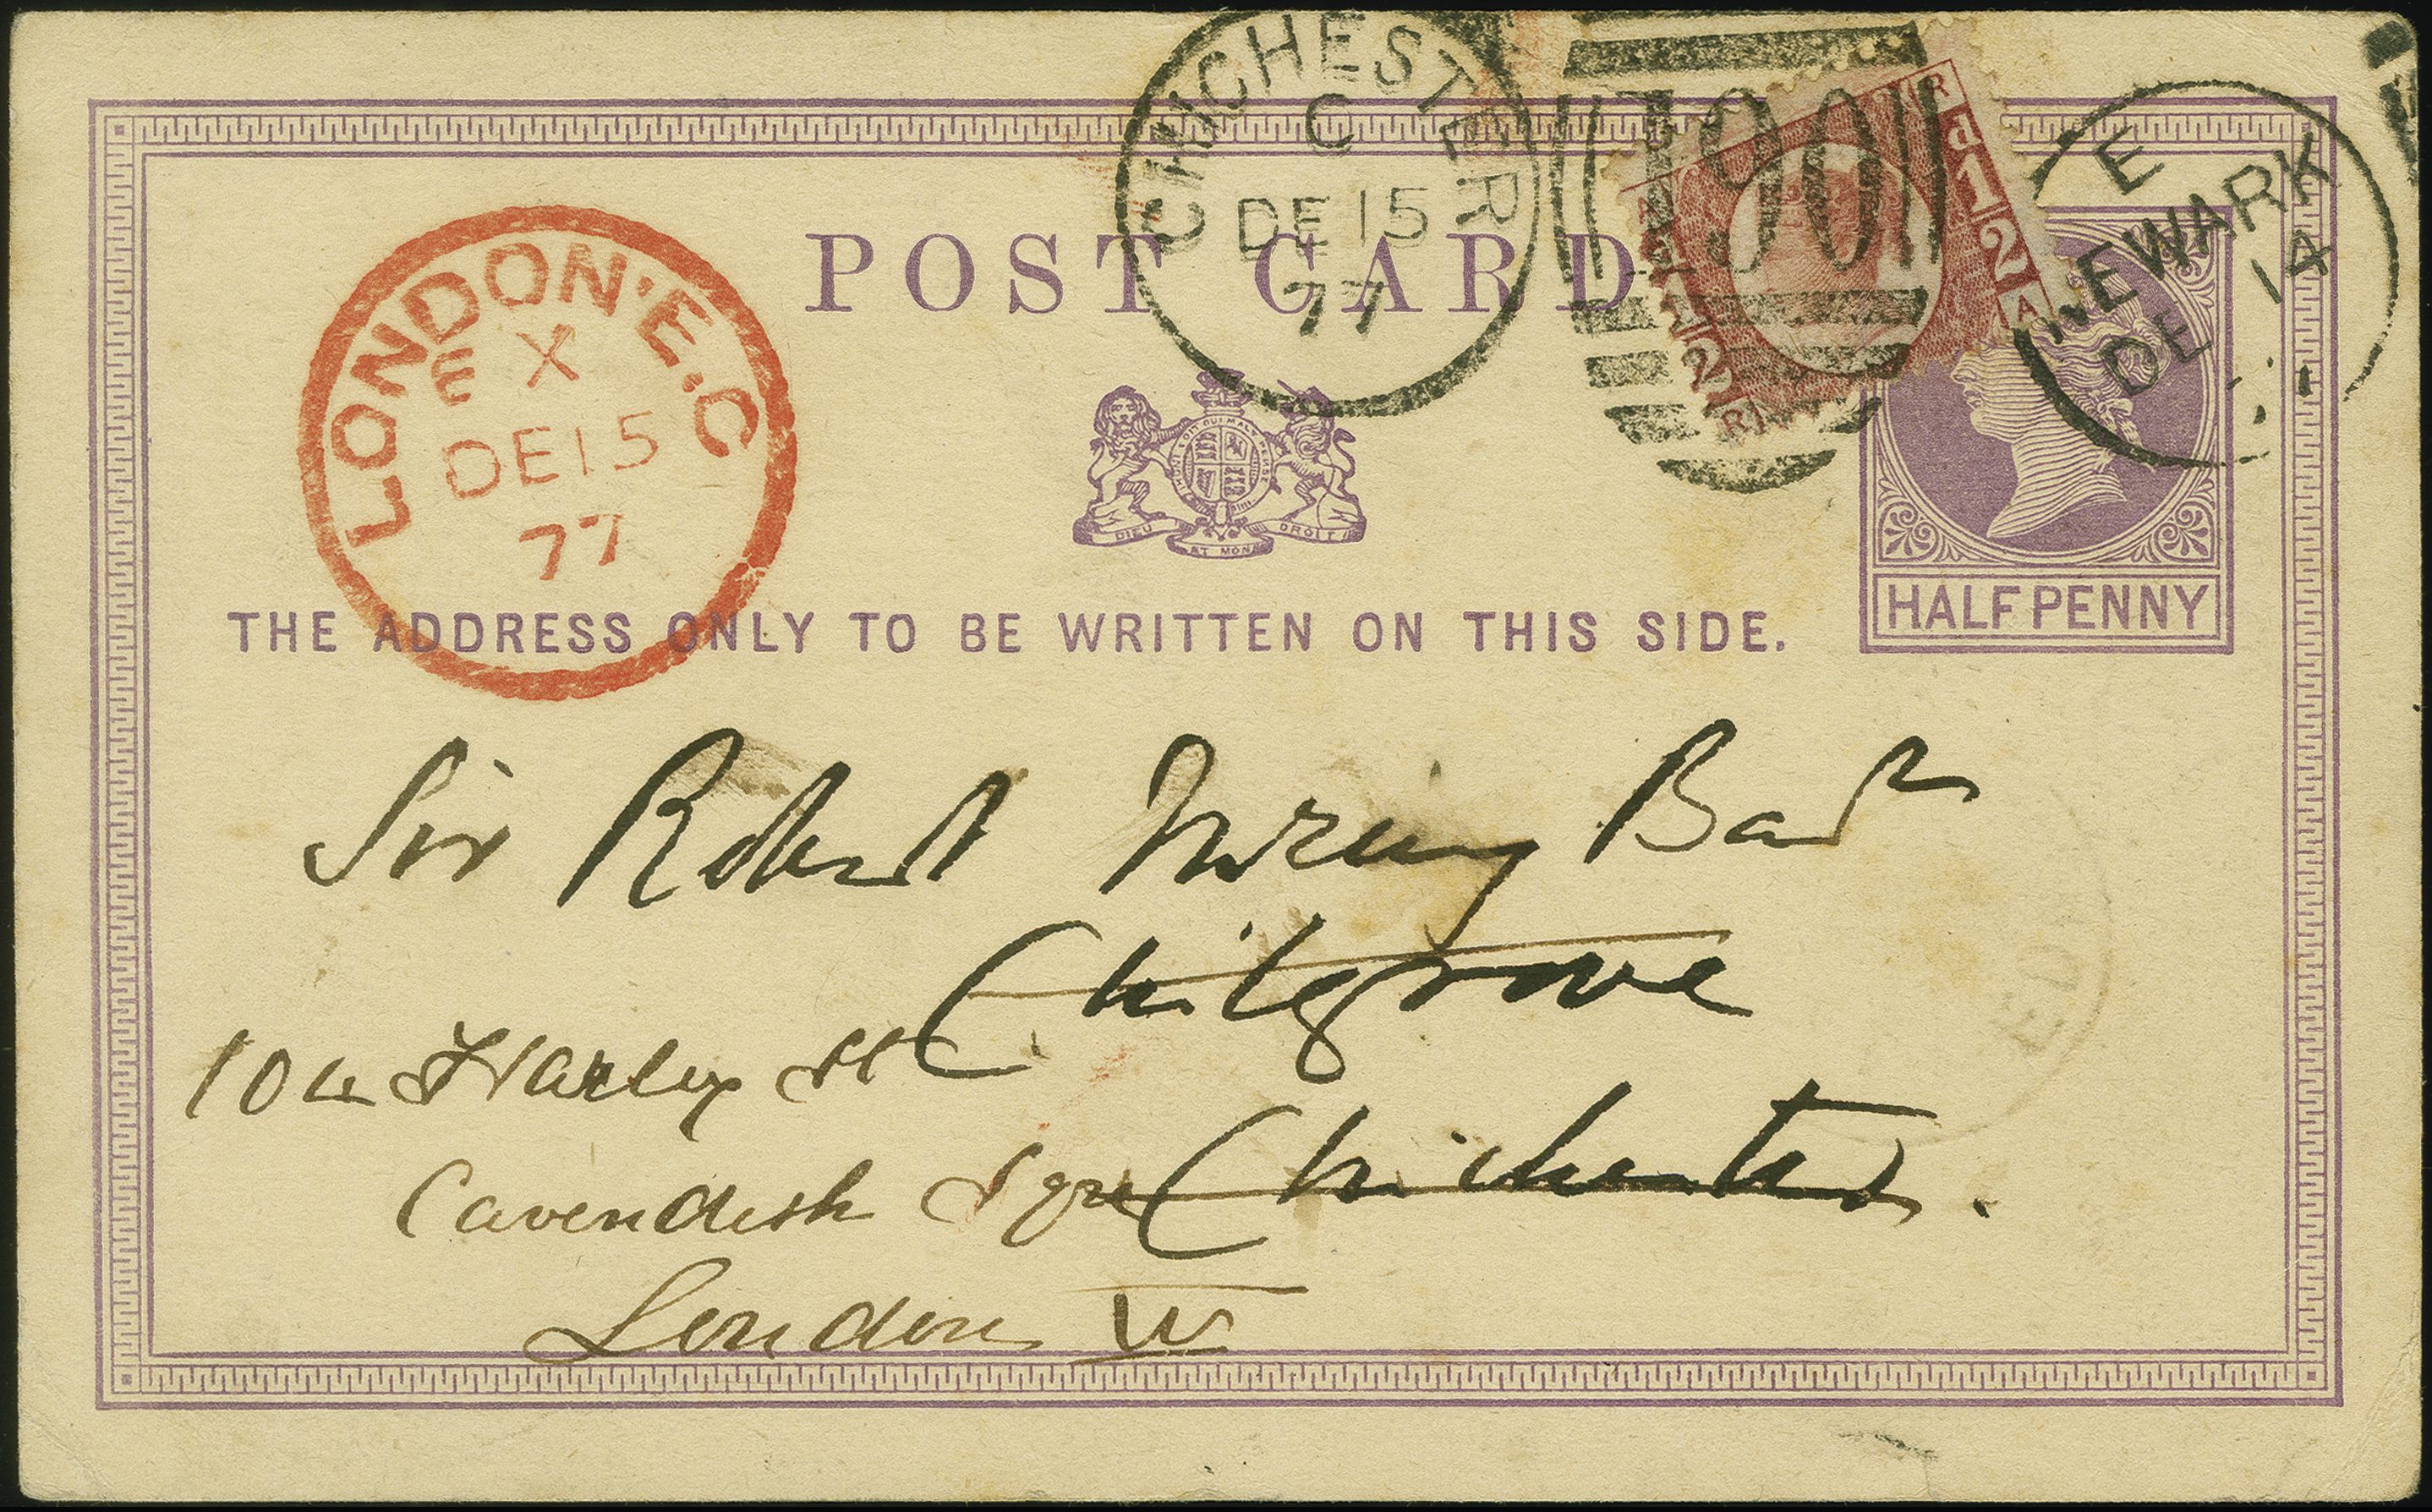 CHICHESTER
C
DE 15
77
190
R
d
1/2
A
1/2
R
E
NEWARK
DE 14
LONDON. E.C
E X
DE 15
77
POST CARD
DIEU ET MON DROIT
HALFPENNY
THE ADDRESS ONLY TO BE WRITTEN ON THIS SIDE.
Sir Robert Bart
Chilgrove
Chichester.
Harley St
Cavendish Sqre
London W